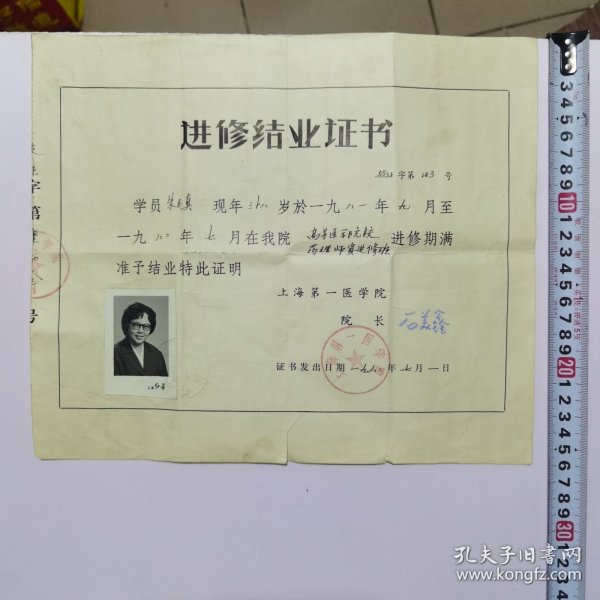 进修结业证书
字第 163 号
学员 现年 三十八 岁於一九八一年 九 月至
一九八二年 七 月在我院 高等医药院校 进修期满
药理师资进修班
准予结业特此证明
上海第一医学院
院 长 石美鑫
证书发出日期 一九八二年 七 月 一 日
字第
号
上海第一医学院
3 4 5 6 7 8 9 10 1 2 3 4 5 6 7 8 9 20 1 2 3 4 5 6 7 8 9 30 1 2 3
孔夫子旧书网
www.kongfz.com